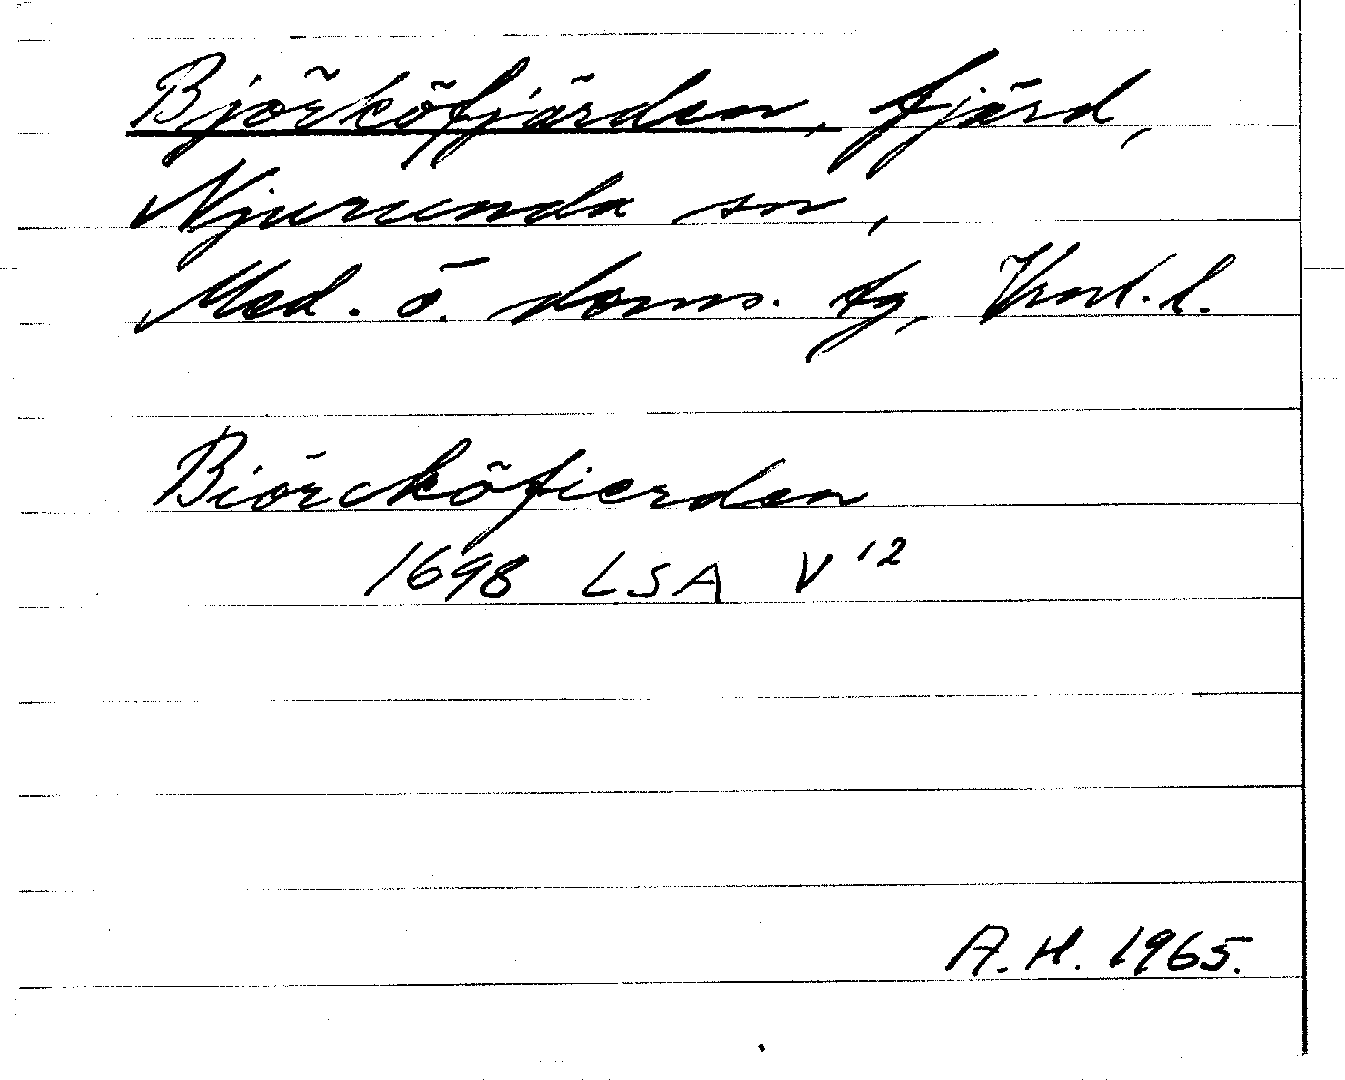 Björköfjärden, fjärd,
Njurunda sn,
Med. ö. doms. tg, Vnl. l.
Biörcköfierden
1698 LSA V¹²
A.H. 1965.